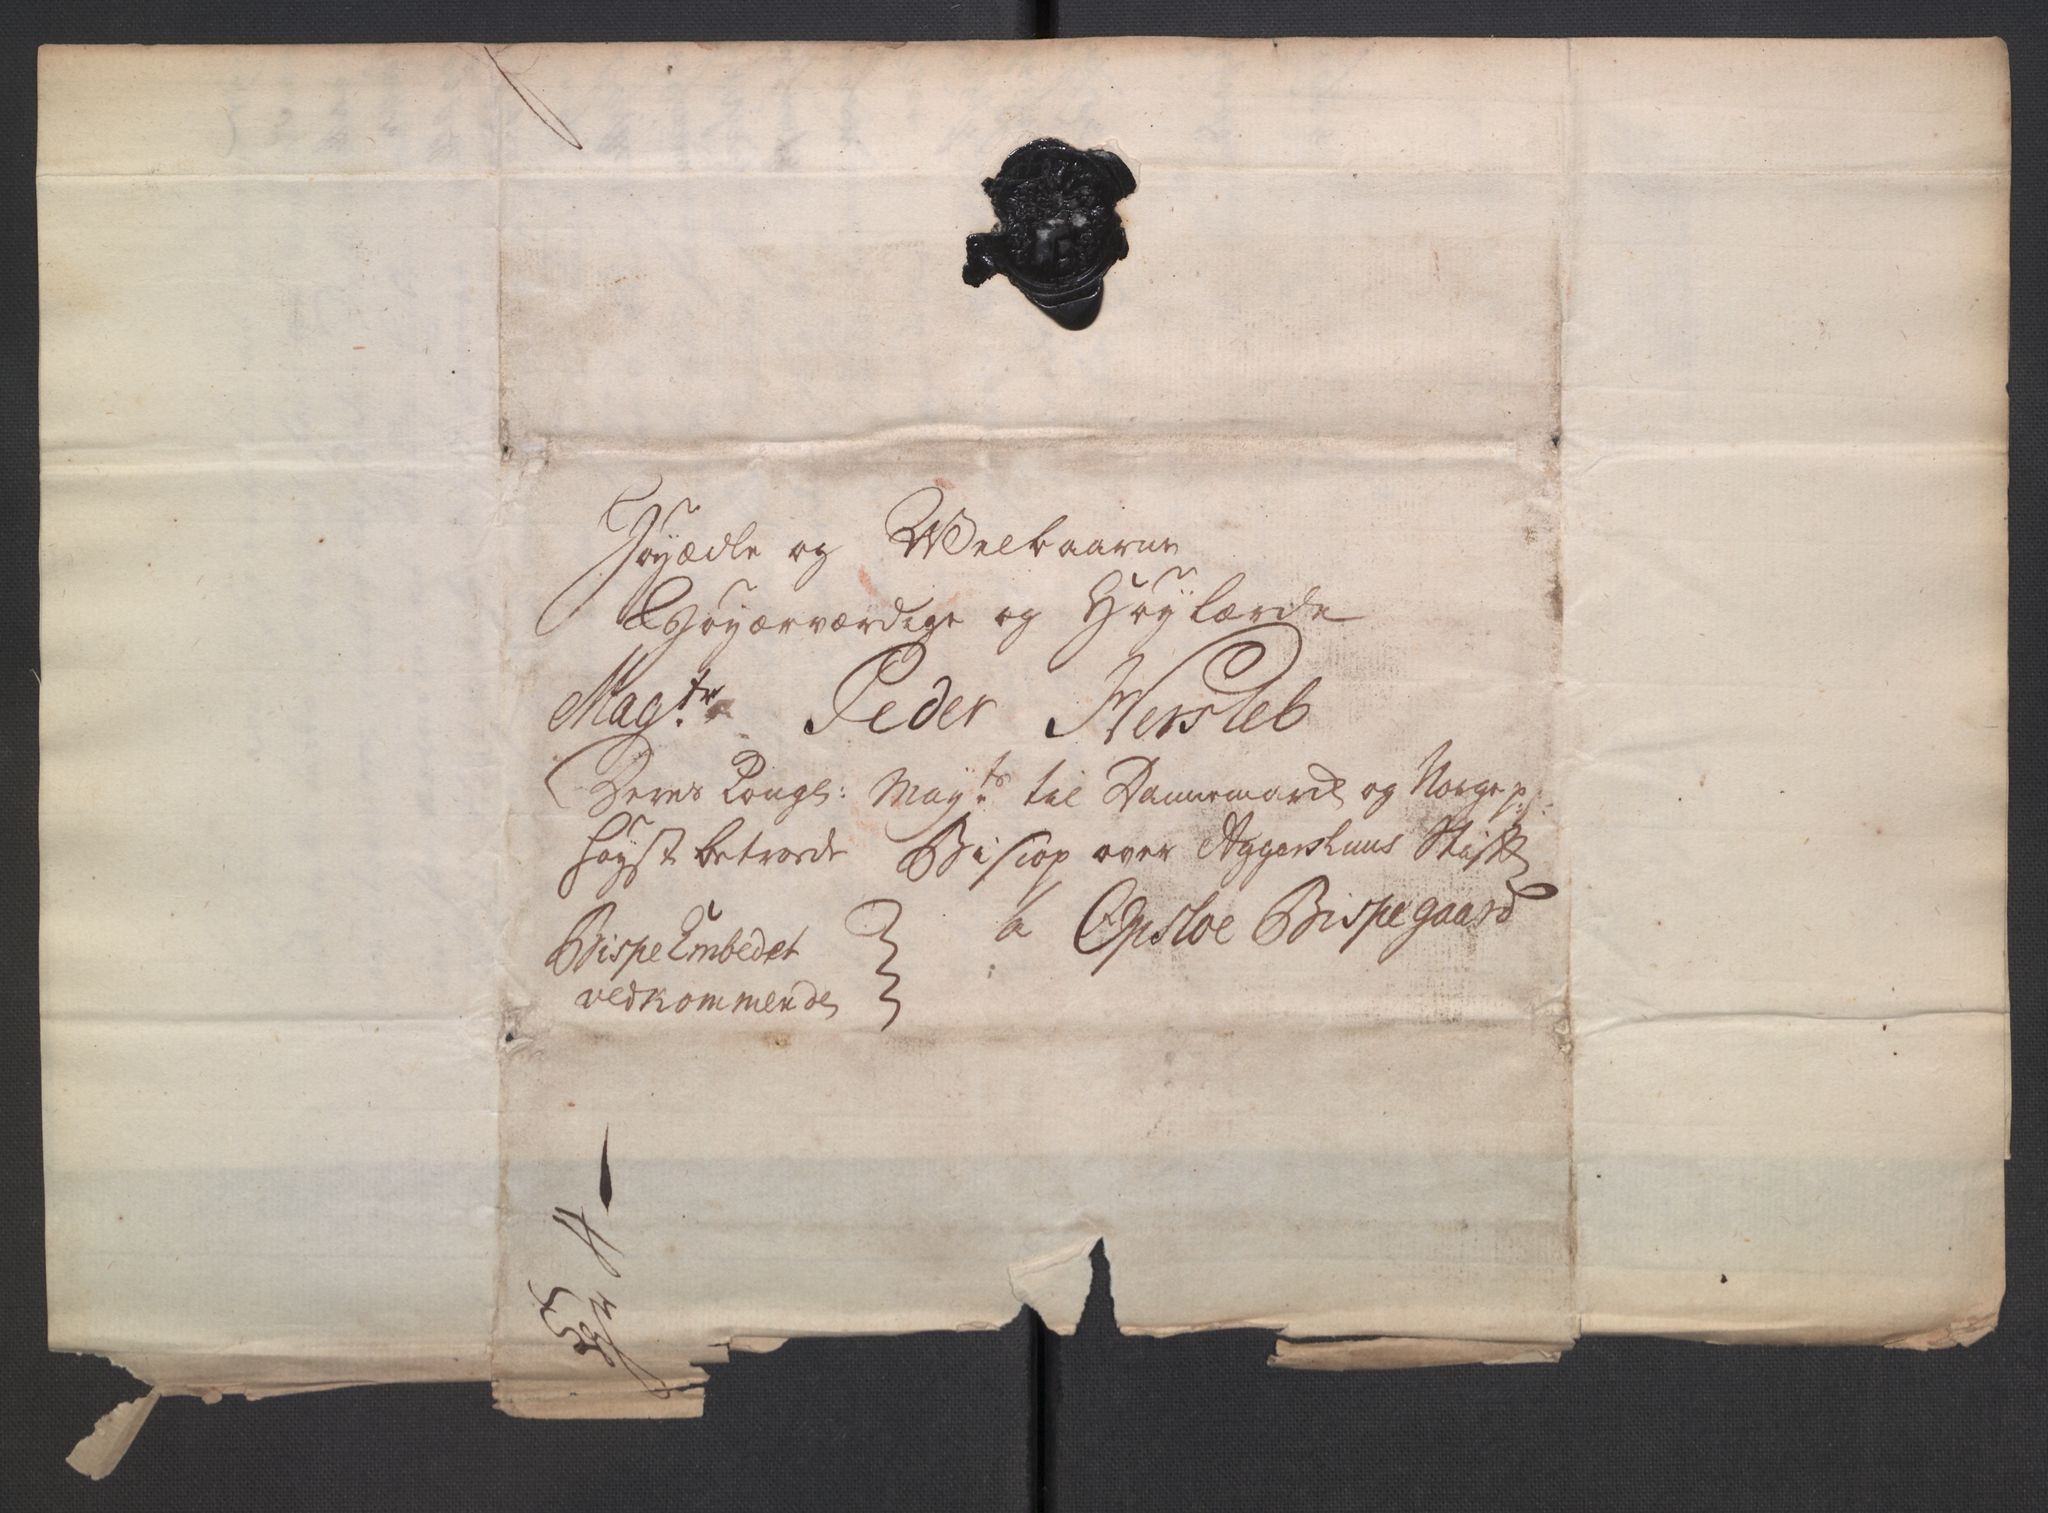 Høyædle og Welbaarne
Høyærværdige og Høylærde
Mag:tr Peder Hersleb
Deres Kongl: May:ts til Dannemark og Norge p.p:
høyst betroede Biscop over Aggershuus Stift
a Opsloe Bispegaard
Bispe Embedet
vedkommende